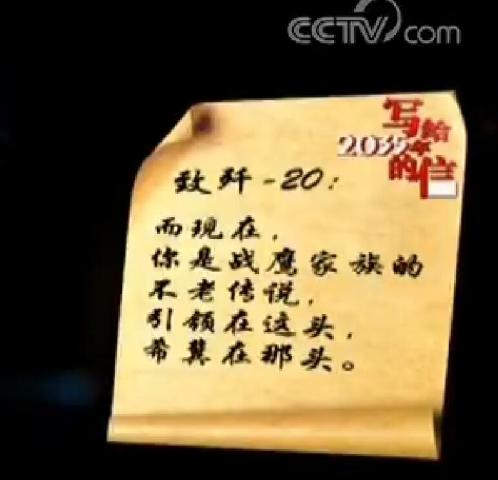 CCTV.com
写给
2035年
的信
致歼-20：
而现在，
你是战鹰家族的
不老传说，
引领在这头，
希冀在那头。